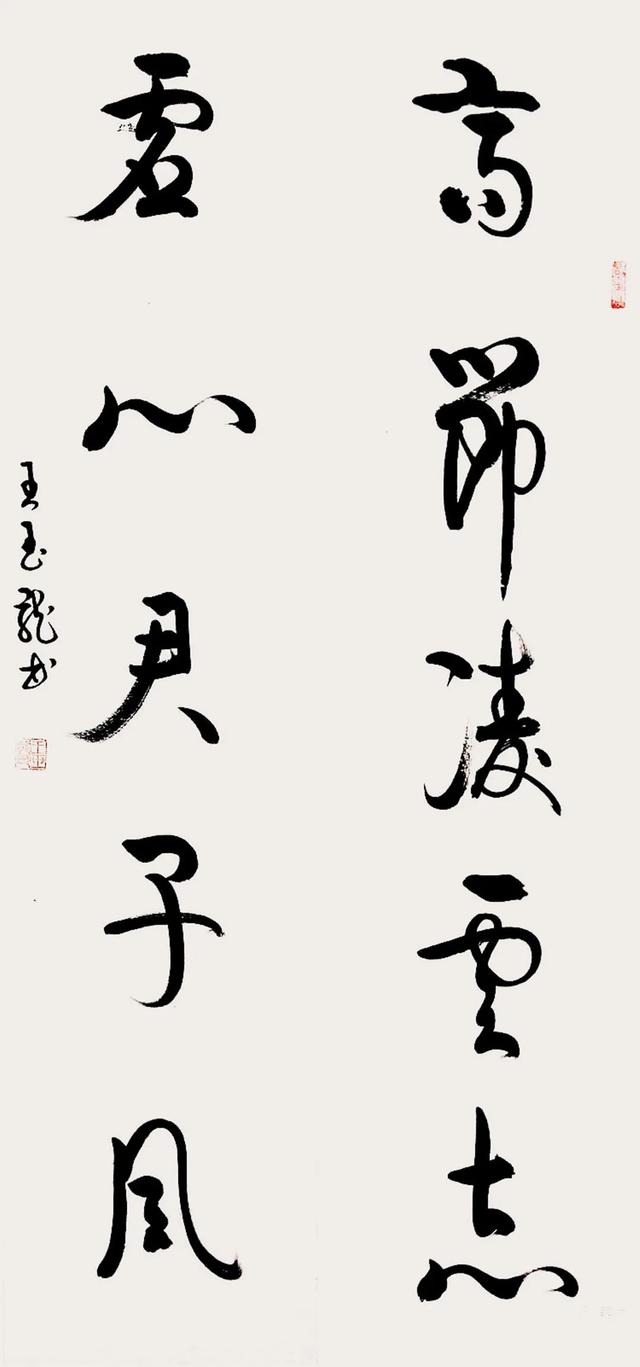 高節凌雲志
虛心君子風
王玉龍书